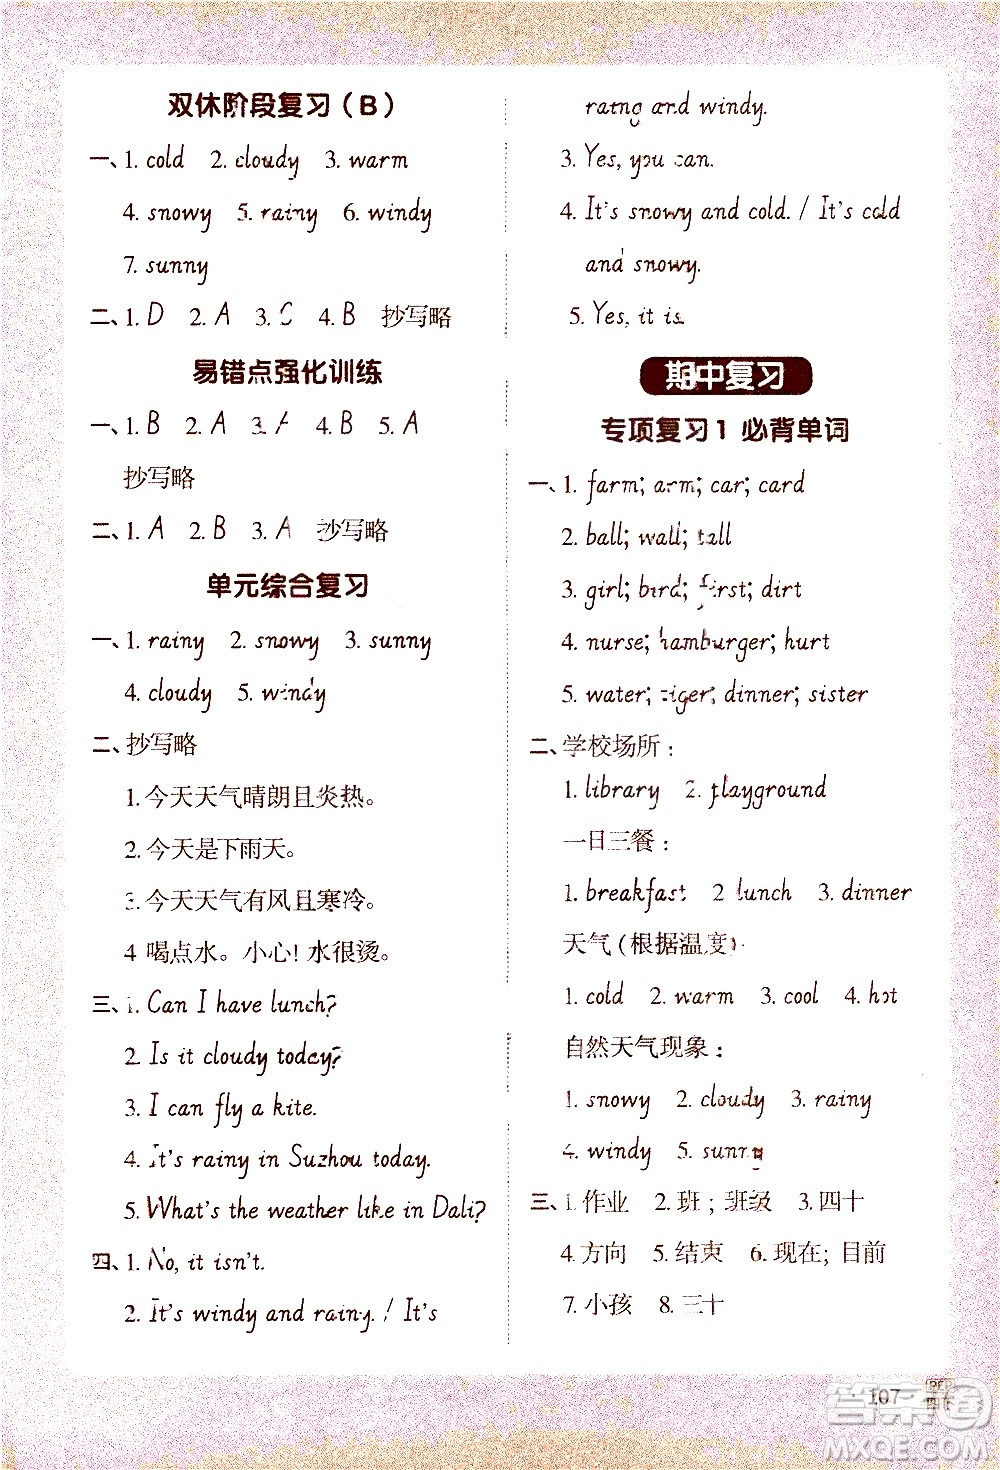 双休阶段复习（B）
一、1. cold 2. cloudy 3. warm
4. snowy 5. rainy 6. windy
7. sunny
二、1. D 2. A 3. C 4. B 抄写略
易错点强化训练
一、1. B 2. A 3. A 4. B 5. A
抄写略
二、1. A 2. B 3. A 抄写略
单元综合复习
一、1. rainy 2. snowy 3. sunny
4. cloudy 5. windy
二、抄写略
1. 今天天气晴朗且炎热。
2. 今天是下雨天。
3. 今天天气有风且寒冷。
4 喝点水。小心! 水很烫。
三、1. Can I have lunch?
2. Is it cloudy today?
3. I can fly a kite.
4. It's rainy in Suzhou today.
5. What's the weather like in Dali?
四、1. No, it isn't.
2. It's windy and rainy. / It's
rainy and windy.
3. Yes, you can.
4. It's snowy and cold. / It's cold
and snowy.
5. Yes, it is.
期中复习
专项复习1 必背单词
一、1. farm; arm; car; card
2. ball; wall; tall
3. girl; bird; first; dirt
4. nurse; hamburger; hurt
5. water; tiger; dinner; sister
二、学校场所：
1. library 2. playground
一日三餐：
1. breakfast 2 lunch 3. dinner
天气（根据温度）：
1. cold 2. warm 3. cool 4. hot
自然天气现象：
1. snowy 2. cloudy 3. rainy
4. windy 5. sunny
三、1. 作业 2. 班; 班级 3. 四十
4. 方向 5. 结束 6. 现在; 目前
7. 小孩 8. 三十
107
答案圈
MXQE.COM